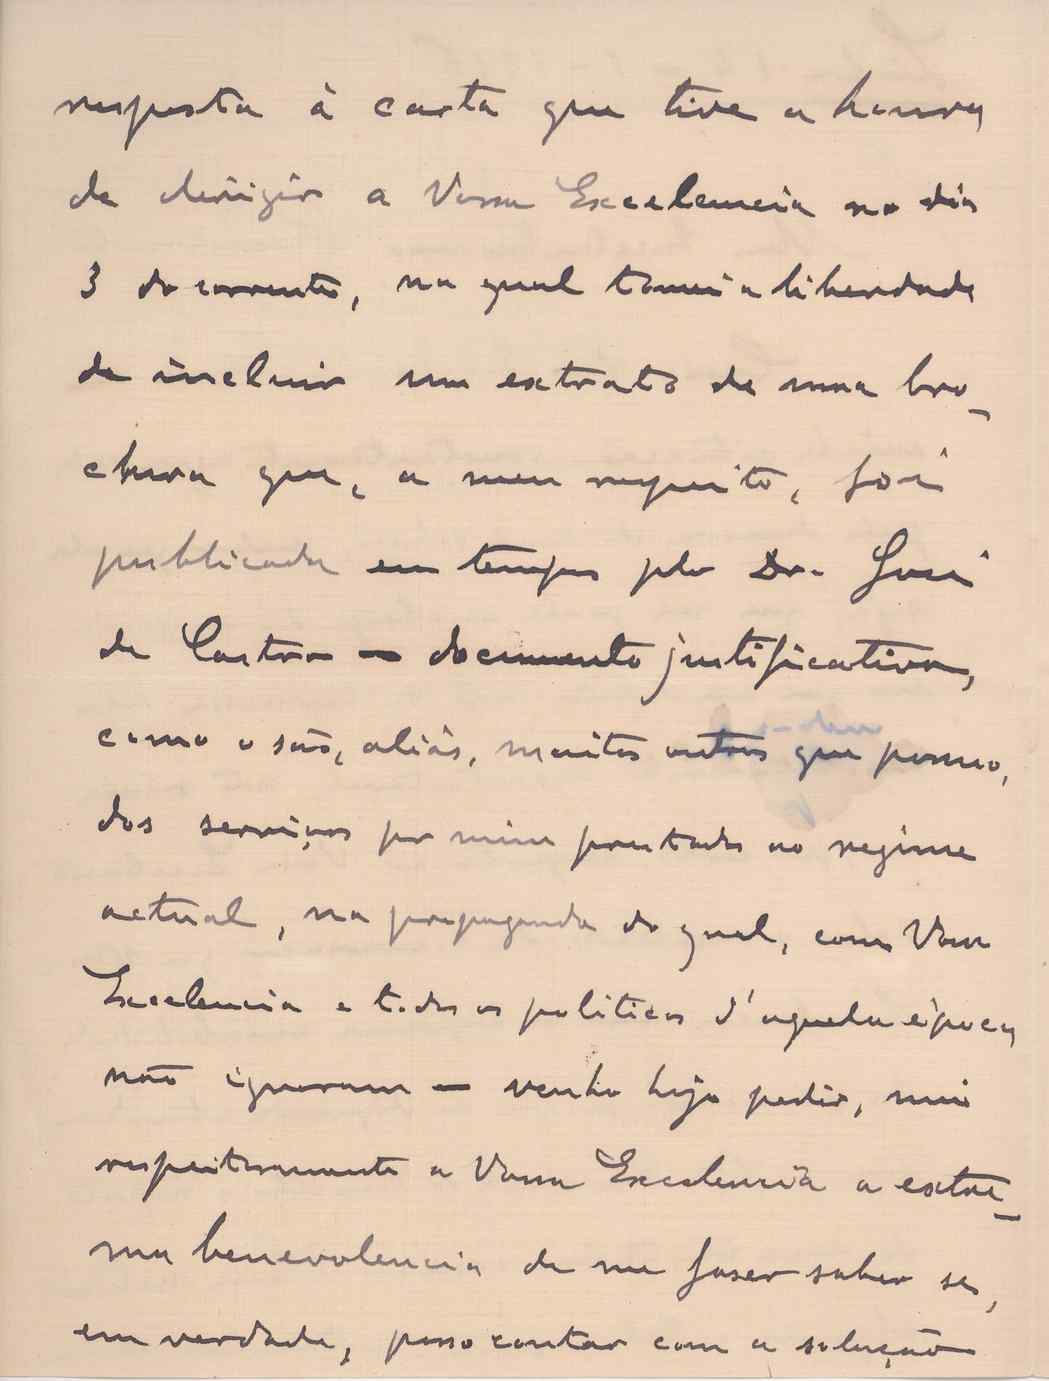 resposta à carta que tive a honra
de dirigir a Vossa Excelencia no dia
3 do corrente, na qual tomei a liberdade
de incluir um extrato de uma bro-
chura que, a meu respeito, foi
publicada em tempos pelo Dr. José
de Castro — documento justificativo,
como o são, aliás, muitos outros que possuo,
dos serviços por mim prestados ao regime
actual, na propaganda do qual, como Vossa
Excelencia e todos os politicos d'aquela época
não ignoram — venho hoje pedir, mui
respeitosamente a Vossa Excelencia a extre-
ma benevolencia de me faser saber se,
em verdade, posso contar com a solução